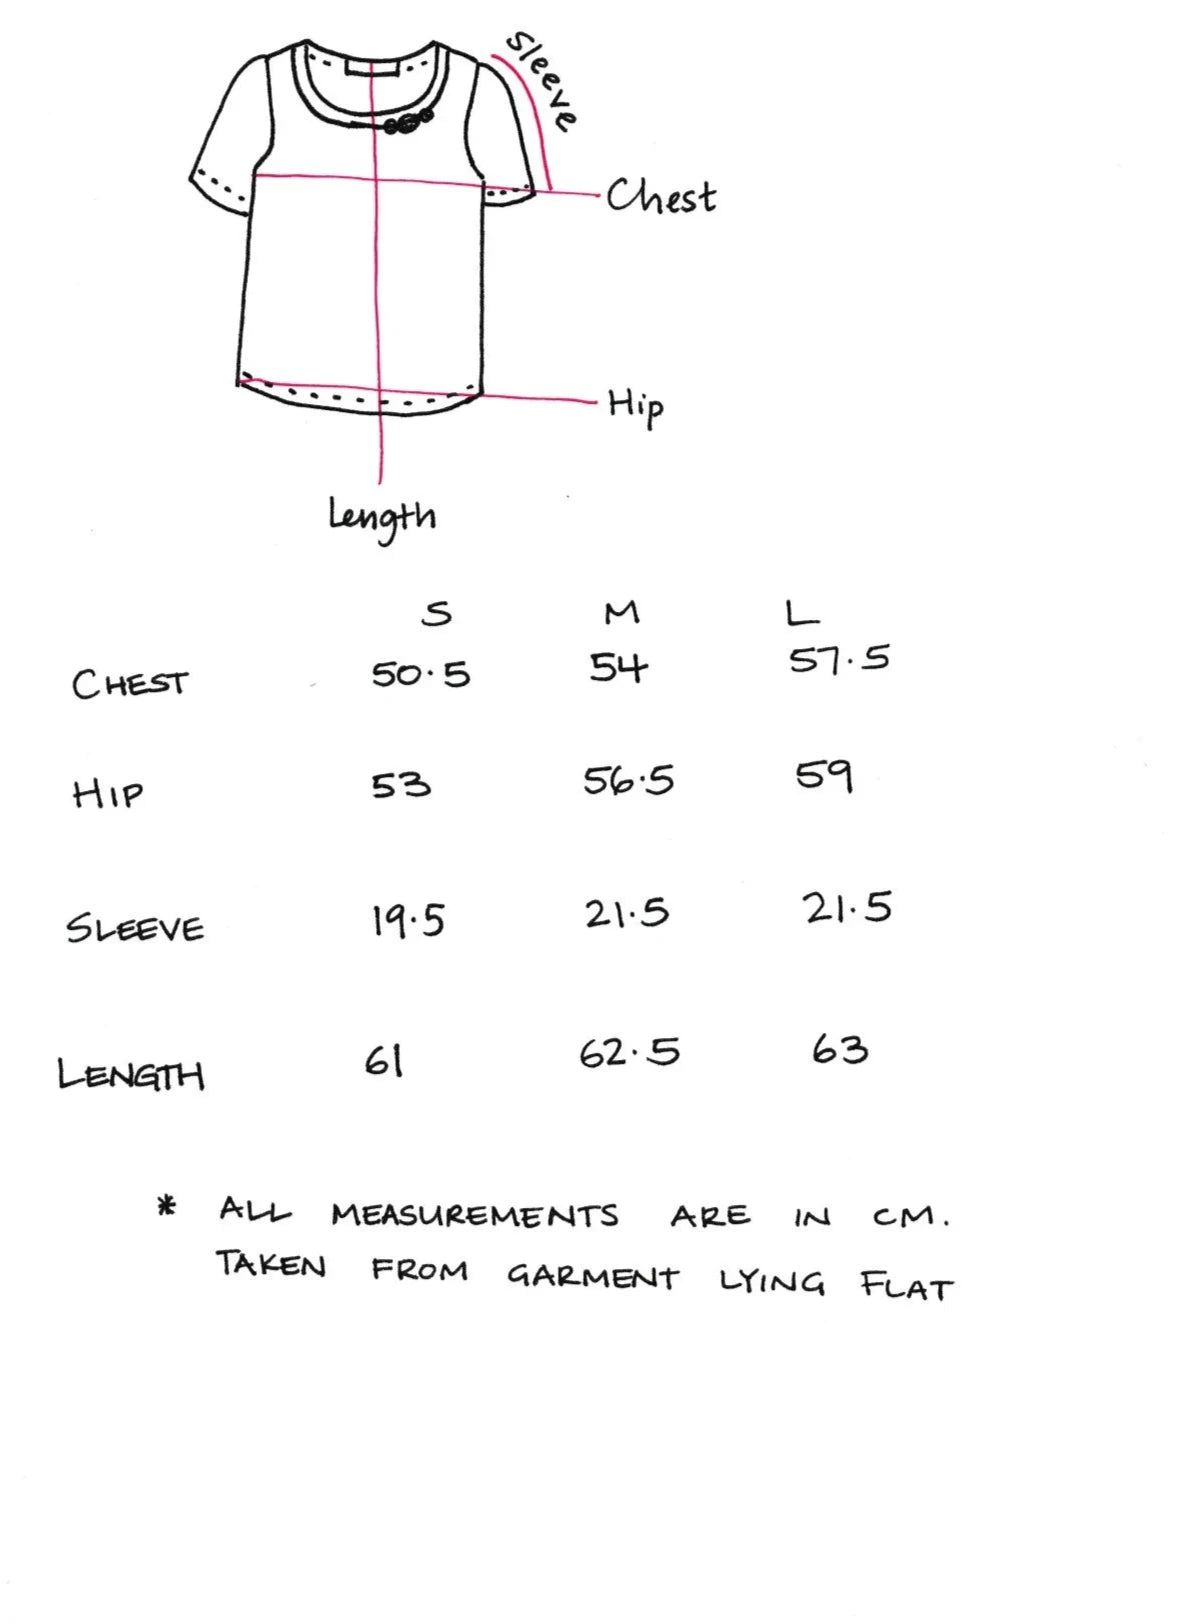 Sleeve
Chest
Hip
Length
S M L
CHEST 50.5 54 57.5
HIP 53 56.5 59
SLEEVE 19.5 21.5 21.5
LENGTH 61 62.5 63
* ALL MEASUREMENTS ARE IN CM.
TAKEN FROM GARMENT LYING FLAT